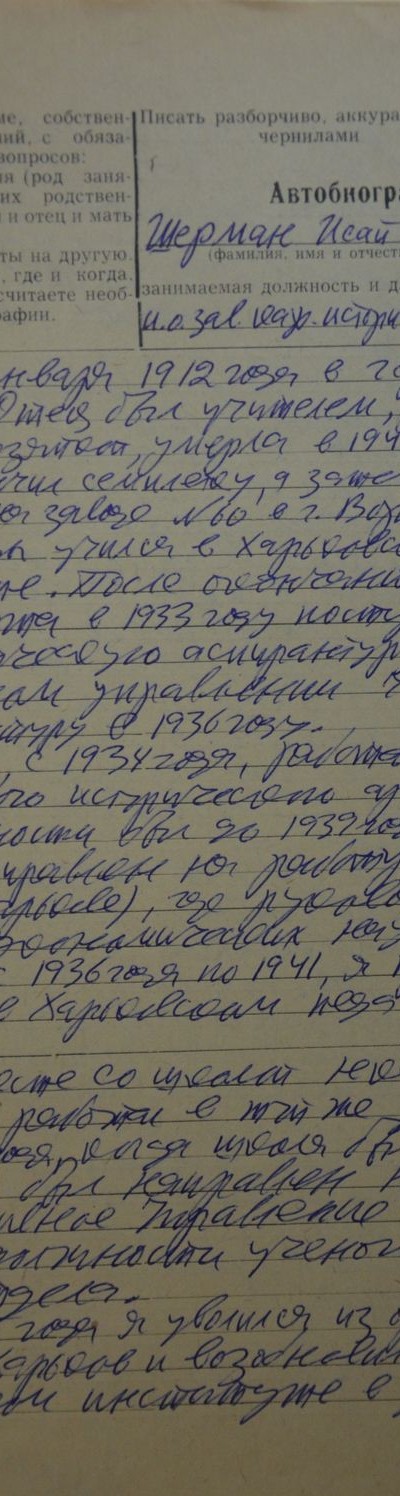 ме, собствен-
ний, с обяза-
вопросов:
ия (род заня-
их родствен-
и и отец и мать
ты на другую.
, где и когда.
считаете необ-
рафии.
Писать разборчиво, аккура
чернилами
Автобиогра
Шерман Исай
(фамилия, имя и отчест
занимаемая должность и да
и.о. зав. кафр. истори
нваря 1912 года в го
Отец был учителем,
умерла в 194
чил семилетку, а зате
на заводе №60 в г. Во
ы учился в Харьковс
те. После окончани
в 1933 году посту
ческую аспирантур
ком управлении
нтуру в 1936 году.
, с 1934 года, работа
ого исторического ар
ности был до 1939 го
правлен на работу
арькове), где руково
экономических нау
с 1936 года по 1941, я
в Харьковском педа
есте со школой
работы в той же
ода, когда школа бы
был направлен
Управление
должности учено
тдела.
года я уволился из
Харьков и возобнови
ом институте в